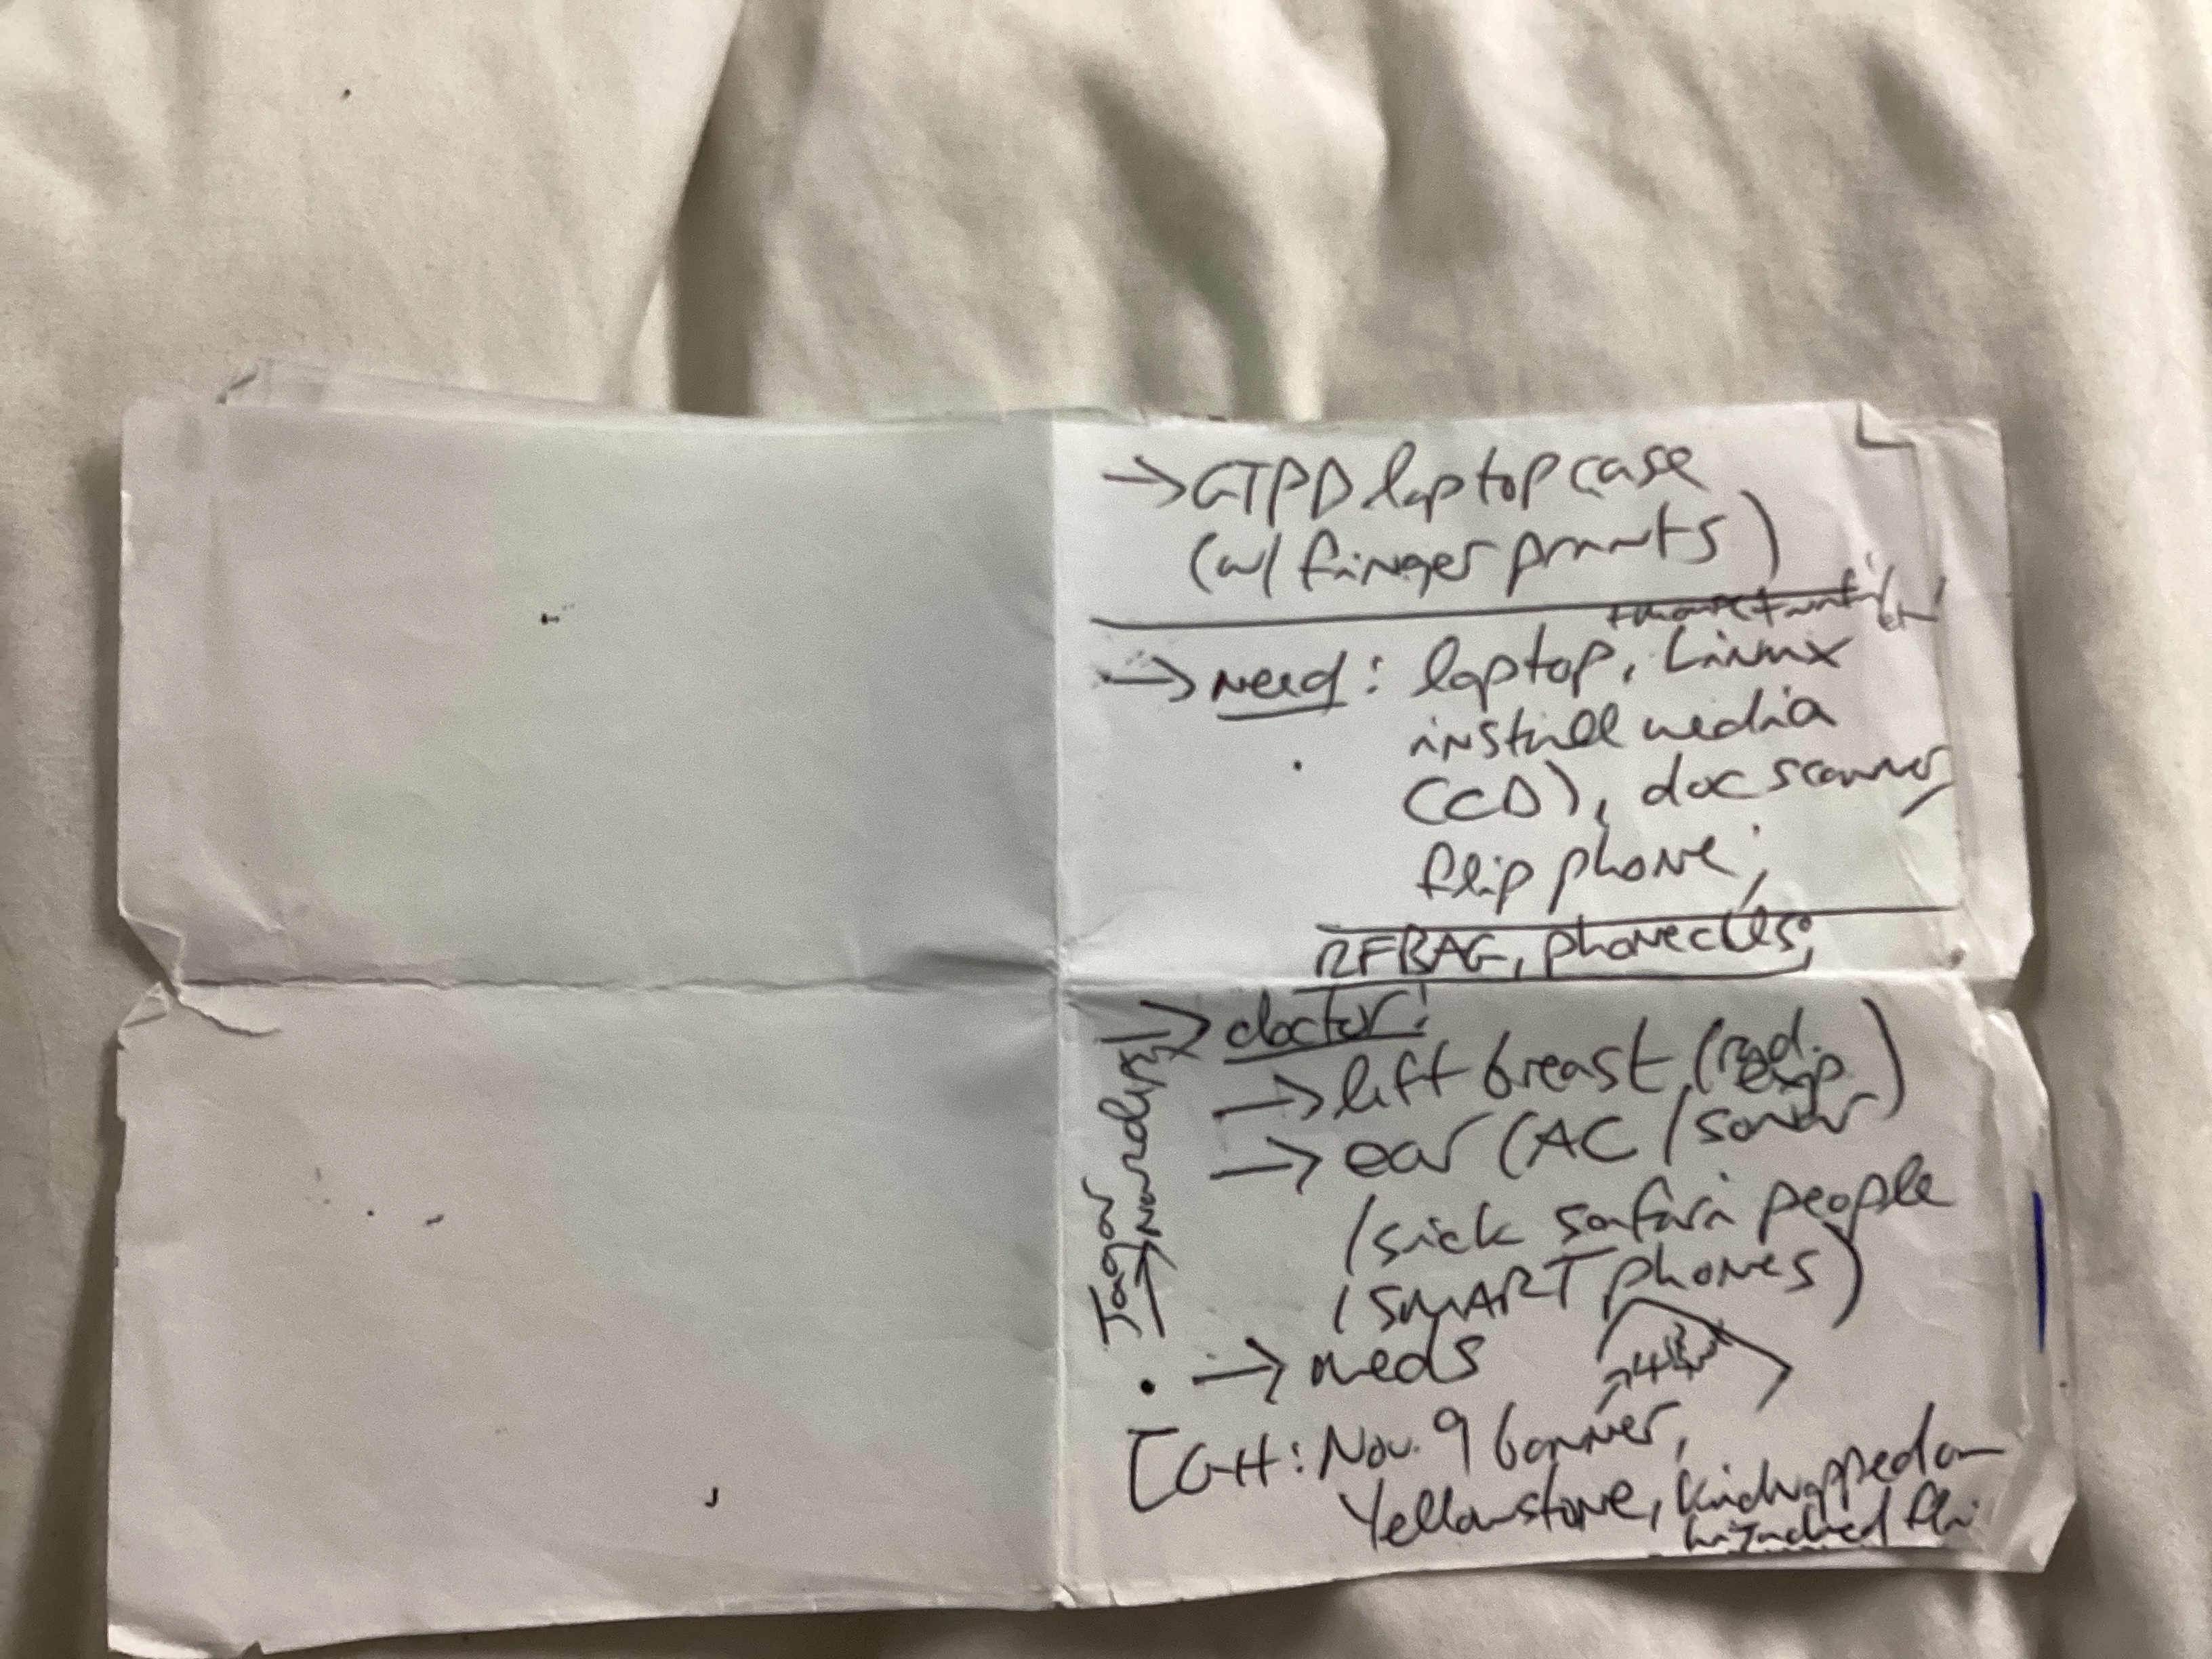 → GTPD laptop case
(w/ finger prints)
→ need: laptop, Linux
install media
(CD), doc scanner,
flip phone,
RFBAG, phone cces;
→ doctor:
→ left breast (rad. exp.)
→ ear (AC / sonar
/ sick safari people
/ SMART phones)
→ meds
[GH: Nov. 9 banner,
Yellowstone, kidnapped on
hijacked fli
Jagar
→